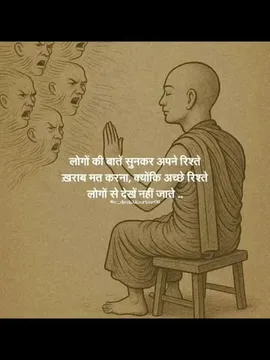 लोगों की बातें सुनकर अपने रिश्ते
ख़राब मत करना, क्योंकि अच्छे रिश्ते
लोगों से देखें नहीं जाते ..